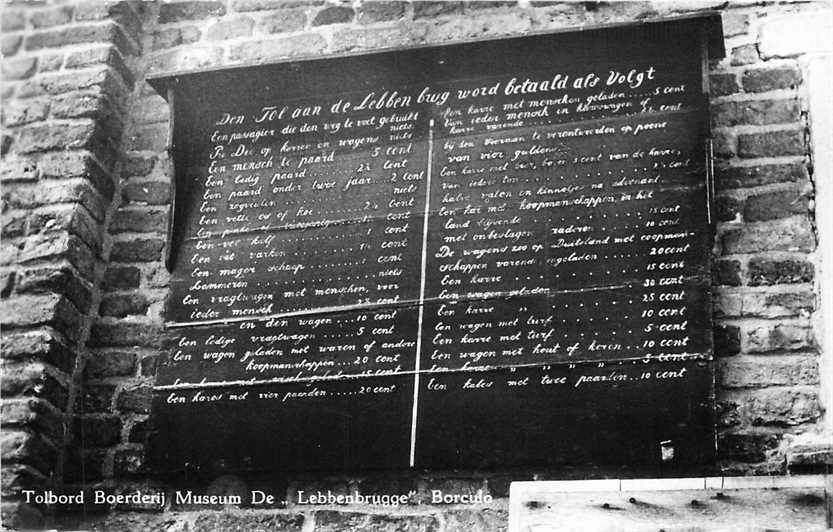 Den Tol aan de Lebben brug word betaald als Volgt
Een passagier die den weg te voet gebruikt
Pie Die op karren en wagens niets
Een mensch te paard 5 cent
Een ledig paard 2½ cent
Een paard onder twee jaar 2 cent
Een zogveulen niets
Een vette os of koe 2½ cent
Een vet kalf 1 cent
Een vet varken 1½ cent
Een mager schaap 1 cent
Lammeren niets
Een vragtwagen met menschen, voor
ieder mensch 2½ cent
en den wagen 10 cent
Een ledige vragtwagen 5 cent
Een wagen geladen met waren of andere
koopmanschappen 20 cent
15 cent
Een karos met vier paarden 20 cent
Een karre met menschen geladen 5 cent
Van ieder mensch in kruiwagen of
karre varende 2½ cent
bij den Voeraan te verantwoorden op poene
van vier gulden
Een karre met bier, 5 cent van de karre,
van ieder ton 1½ cent
halve vaten en kinnetjes na advenant
Een kar met koopmanschappen in het
land blijvende 15 cent
met onbeslagen raderen 10 cent
De wagens zoo op Duitsland met koopman-
schappen varend, ongeladen 20 cent
Een karre 15 cent
Een wagen geladen 30 cent
Een karre " 25 cent
Een wagen met turf 10 cent
Een karre met turf 5 cent
Een wagen met hout of koren 10 cent
Een karre " " " " 5 cent
Een kales met twee paarden 10 cent
Tolbord Boerderij Museum De „Lebbenbrugge", Borculo